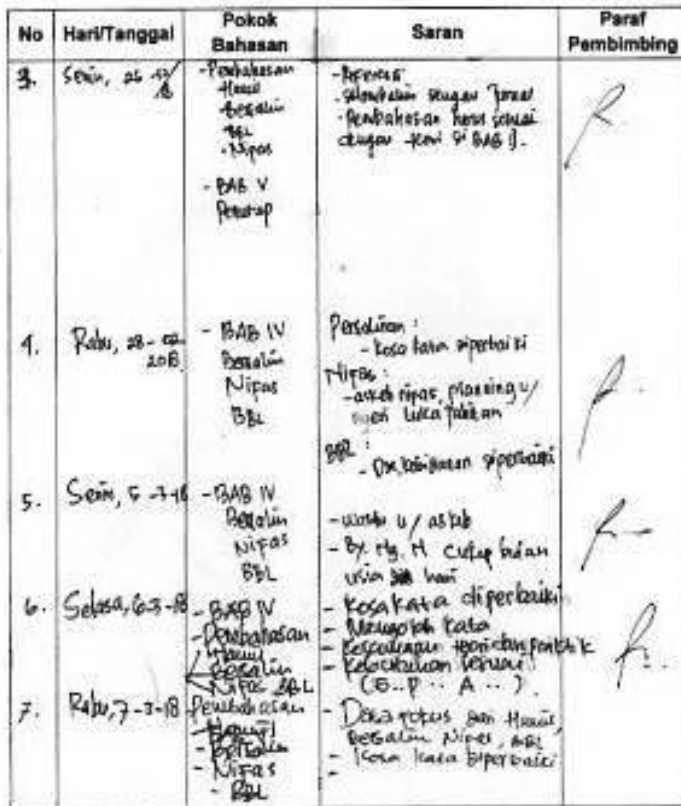 No Hari/Tanggal Pokok Bahasan Saran Paraf Pembimbing
3. Senin,
- Pembahasan
Hamil
Bersalin
BBL
- Nifas
- BAB V
Penutup
- Referensi
dengan jurnal
- Pembahasan harus sesuai
dengan di BAB
4. Rabu, 28-02
2018
- BAB IV
Bersalin
Nifas
BBL
Persalinan :
- kosa kata diperbaiki
Nifas :
- askeb nifas, planning u/
nyeri luka jahitan
BBL :
- Dx kebidanan diperbaiki
5. Senin, 5-3-18
- BAB IV
Bersalin
Nifas
BBL
- u/ askeb
- By. Ny. M cukup bulan
usia hari
6. Selasa, 6-3-18
- BAB IV
- Pembahasan
Hamil
Bersalin
Nifas BBL
- Kosakata diperbaiki
- Mengolah kata
- Kesenjangan teori dan praktik
(E..P.. A..)
7. Rabu, 7-3-18
Pembahasan
- Hamil
- Bersalin
- Nifas
- BBL
- dari Hamil,
Bersalin Nifas, BBL
- Kosa kata diperbaiki
-